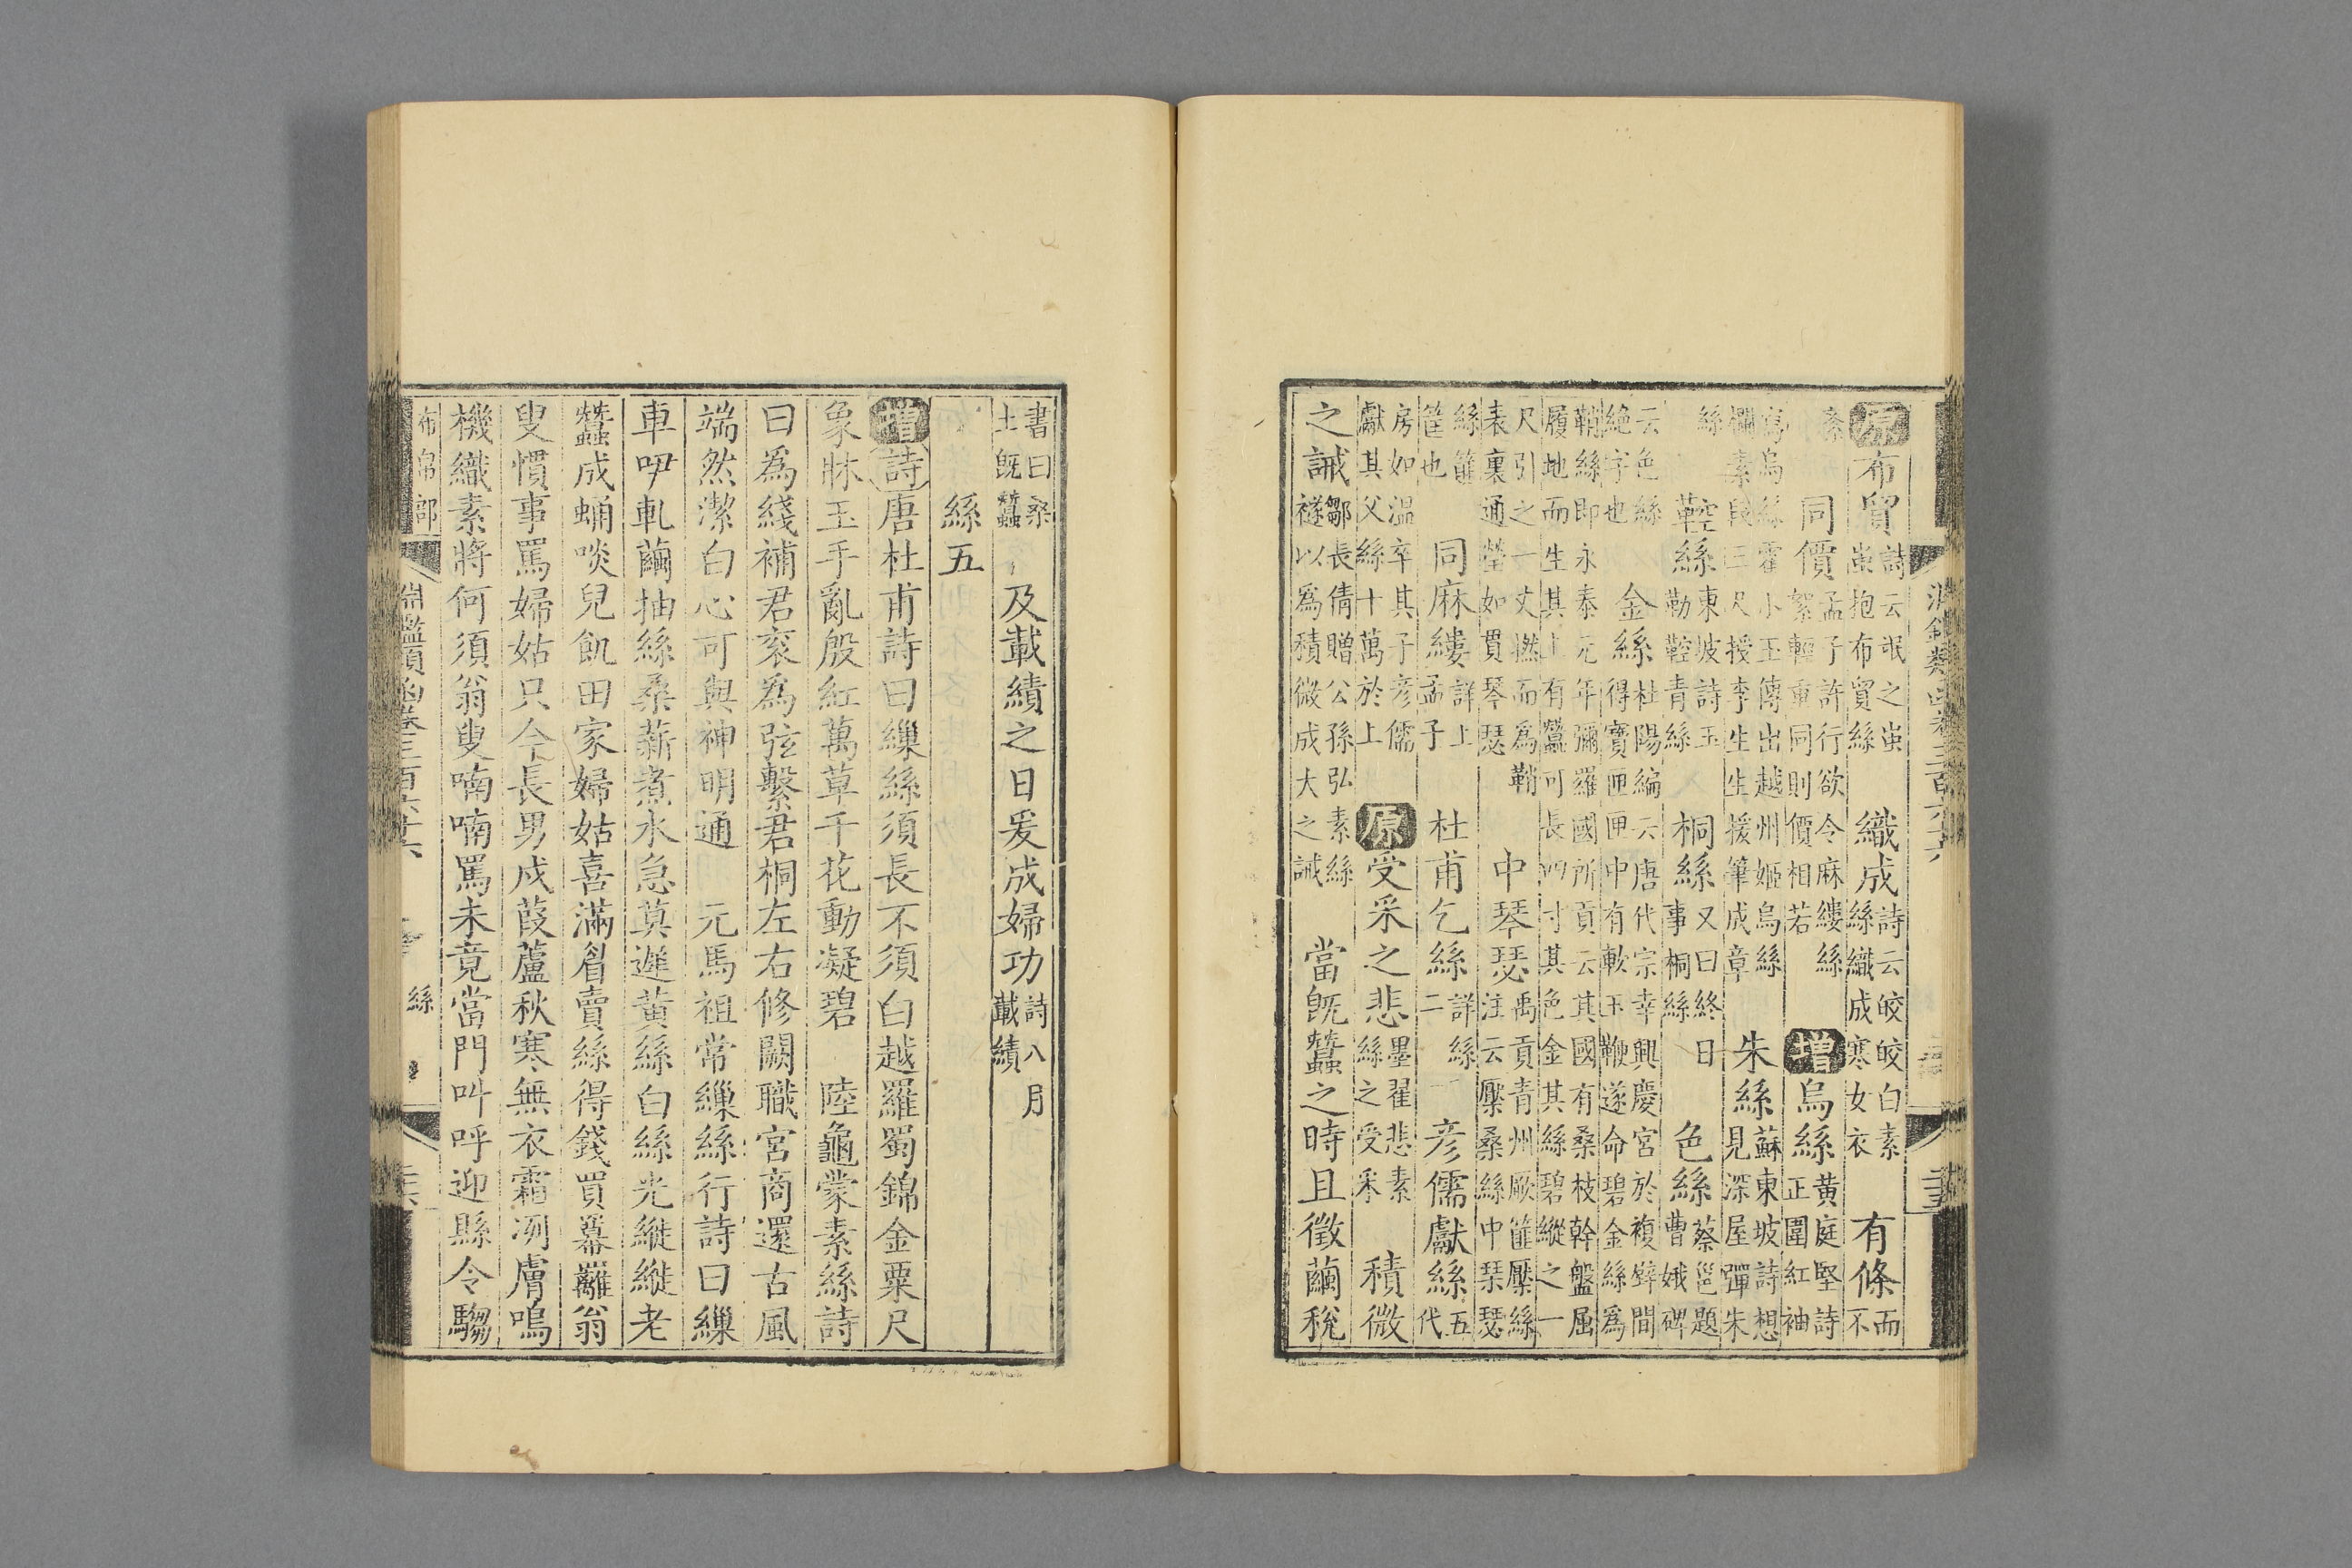 原布貿詩云氓之蚩蚩抱布貿絲 織成詩云皎皎白素絲織成寒女衣 有條而不
紊 同價孟子許行欲令麻縷絲絮輕重同則價相若 增烏絲黄庭堅詩正圍紅袖
寫烏絲霍小玉傳出越州姬烏絲欄素段三尺授李生生援筆成章 朱絲蘇東坡詩想見深屋彈朱
絲 鞚絲東坡詩玉勒鞚青絲 桐絲又曰終日事桐絲 色絲蔡邕題曹娥碑
云色絲絕字也 金絲杜陽編云唐代宗幸興慶宮於複壁間得寶匣匣中有軟玉鞭遂命碧金絲爲
鞘絲即永泰元年彌羅國所貢云其國有桑枝幹盤屈履地而生其上有蠶可長四寸其色金其絲碧縱之一
尺引之一丈撚而爲鞘表裏通瑩如貫琴瑟 中琴瑟禹貢青州厥篚檿絲注云檿桑絲中琹瑟
絲篚筐也 同麻縷詳上孟子 杜甫乞絲詳絲二 彦儒獻絲五代
房如温卒其子彦儒獻其父絲十萬於上 原受采之悲墨翟悲素絲之受采 積微
之誡鄒長倩贈公孫弘素絲襚以爲積微成大之誡 當旣蠶之時且徵繭稅
書曰桑土旣蠶 及載績之日爰成婦功詩八月載績
絲五
增詩唐杜甫詩曰繅絲須長不須白越羅蜀錦金粟尺
象牀玉手亂殷紅萬草千花動凝碧 陸龜蒙素絲詩
曰爲綫補君衮爲弦繫君桐左右修闕職宮商還古風
端然潔白心可與神明通 元馬祖常繅絲行詩曰繅
車咿軋繭抽絲桑薪煮水急莫遲黄絲白絲光縰縰老
蠶成蛹啖兒飢田家婦姑喜滿眉賣絲得錢買羃䍦翁
叟慣事罵婦姑只今長男戍葭蘆秋寒無衣霜冽膚鳴
機織素將何須翁叟喃喃罵未竟當門叫呼迎縣令騶
布帛部 淵鑑類函卷三百六十六 絲